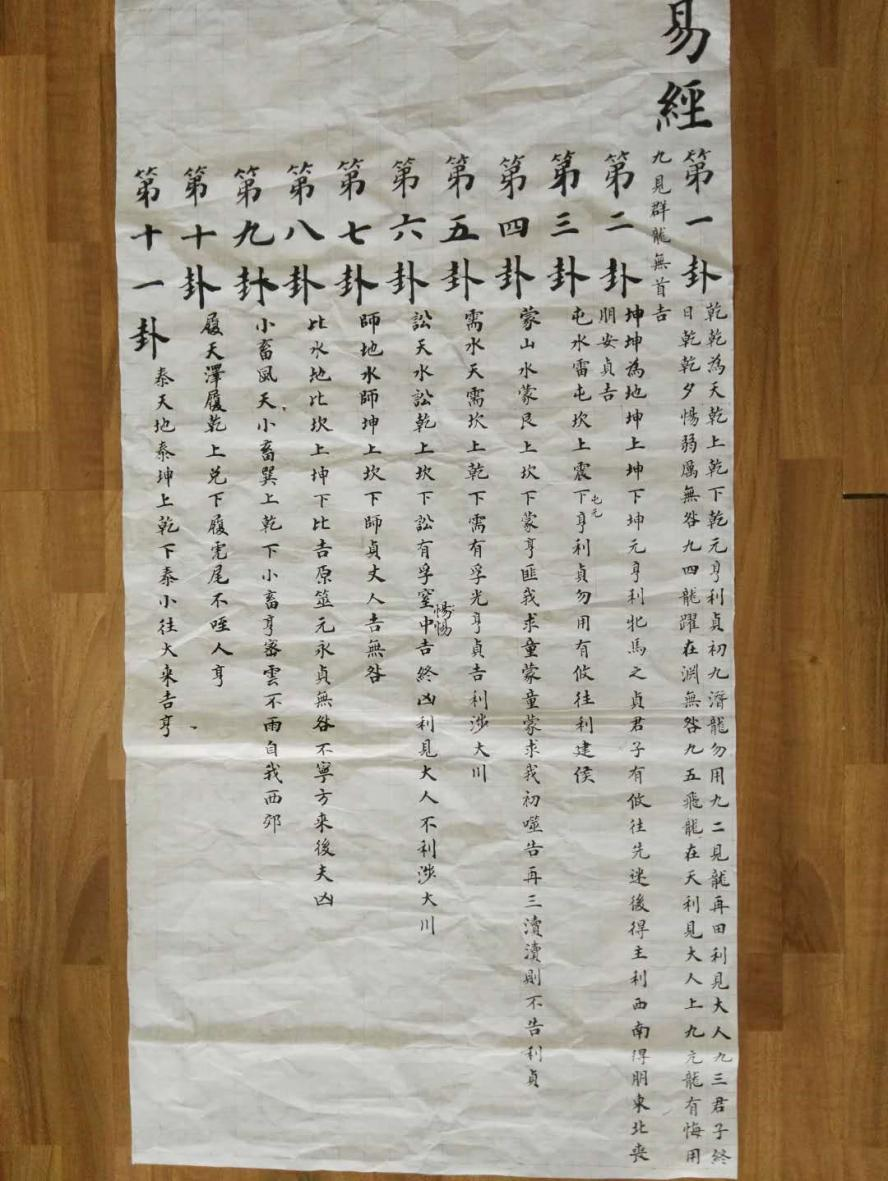 易經
第一卦
乾乾為天乾上乾下乾元亨利貞初九潛龍勿用九二見龍再田利見大人九三君子終
日乾乾夕惕弱厲無咎九四龍躍在淵無咎九五飛龍在天利見大人上九亢龍有悔用
九見群龍無首吉
第二卦
坤坤為地坤上坤下坤元亨利牝馬之貞君子有攸往先迷後得主利西南得朋東北喪
朋安貞吉
第三卦
屯水雷屯坎上震下亨利貞勿用有攸往利建侯
屯元
第四卦
蒙山水蒙艮上坎下蒙亨匪我求童蒙童蒙求我初噬告再三瀆瀆則不告利貞
第五卦
需水天需坎上乾下需有孚光亨貞吉利涉大川
第六卦
訟天水訟乾上坎下訟有孚窒中吉終凶利見大人不利涉大川
惕惕
第七卦
師地水師坤上坎下師貞丈人吉無咎
第八卦
比水地比坎上坤下比吉原筮元永貞無咎不寧方來後夫凶
第九卦
小畜風天小畜巽上乾下小畜亨密雲不雨自我西郊
第十卦
履天澤履乾上兌下履虎尾不咥人亨
第十一卦
泰天地泰坤上乾下泰小往大來吉亨